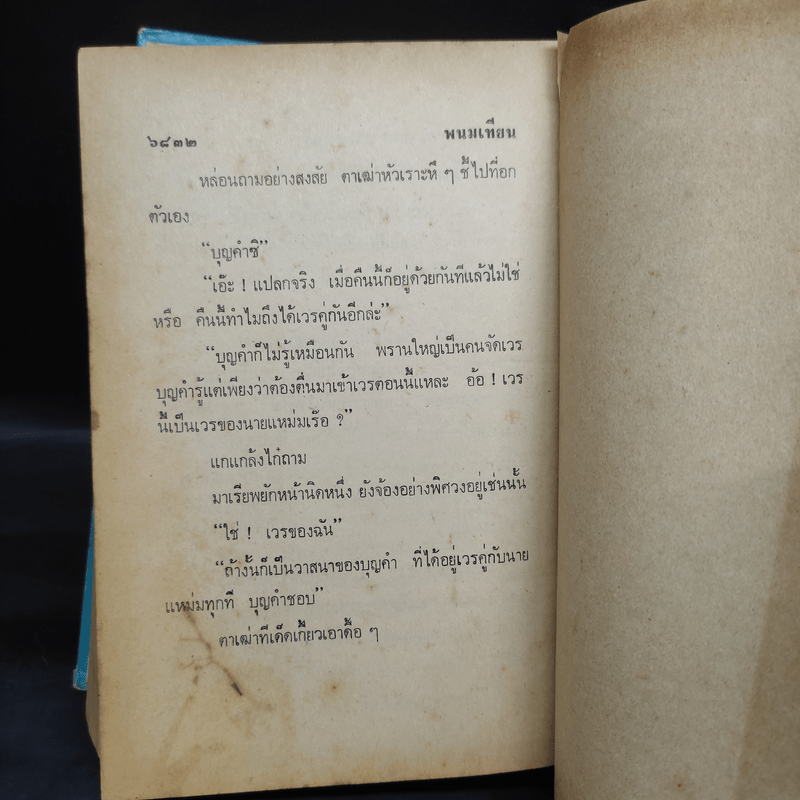 ๖๘๓๒ พนมเทียน
หล่อนถามอย่างสงสัย ตาเฒ่าหัวเราะหึ ๆ ชี้ไปที่อก
ตัวเอง
“บุญคำซิ”
“เอ๊ะ ! แปลกจริง เมื่อคืนนี้ก็อยู่ด้วยกันทีแล้วไม่ใช่
หรือ คืนนี้ทำไมถึงได้เวรคู่กันอีกล่ะ”
“บุญคำก็ไม่รู้เหมือนกัน พรานใหญ่เป็นคนจัดเวร
บุญคำรู้แต่เพียงว่าต้องตื่นมาเข้าเวรตอนนี้แหละ อ้อ ! เวร
นี้เป็นเวรของนายแหม่มเรือ ?”
แกแกล้งไก๋ถาม
มาเรียพยักหน้านิดหนึ่ง ยังจ้องอย่างพิศวงอยู่เช่นนั้น
“ใช่ ! เวรของฉัน”
“ถ้างั้นก็เป็นวาสนาของบุญคำ ที่ได้อยู่เวรคู่กับนาย
แหม่มทุกที บุญคำชอบ”
ตาเฒ่าทีเด็ดเกี้ยวเอาดื้อ ๆ